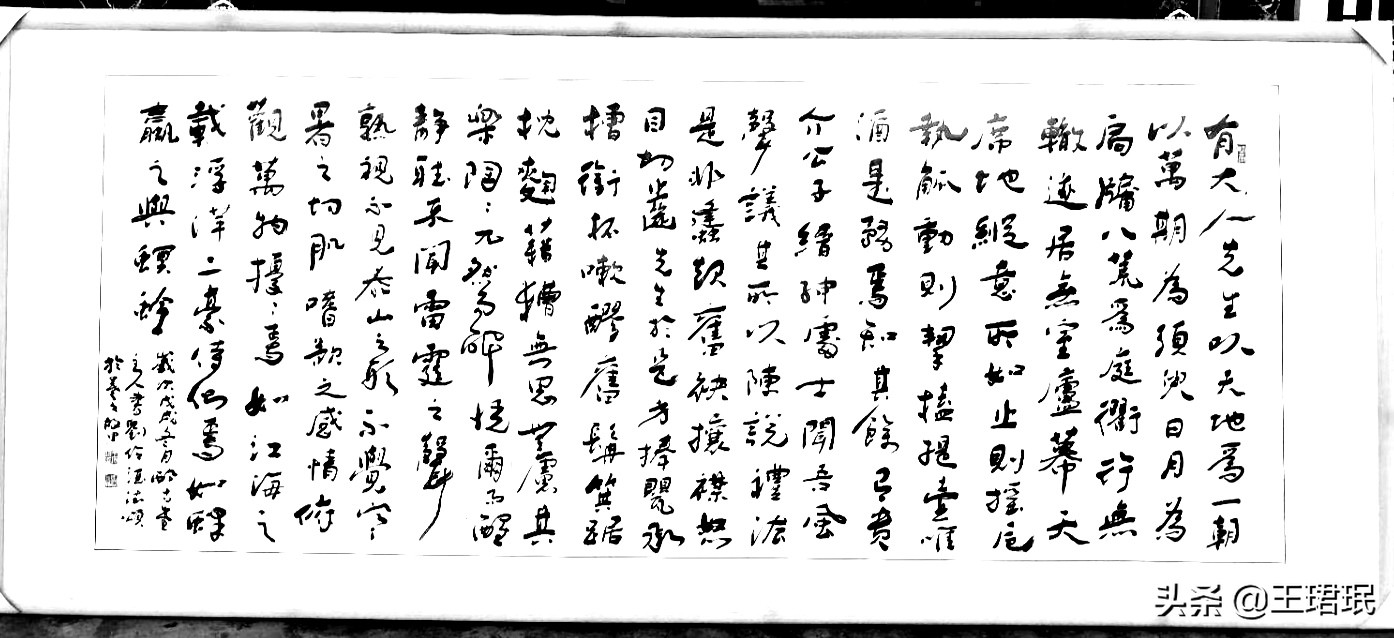 有大人先生以天地為一朝
以萬期為須臾日月為
扃牖八荒為庭衢行無
轍迹居無室廬幕天
席地縱意所如止則操卮
執觚動則挈榼提壺唯
酒是務焉知其餘有貴
介公子縉紳處士聞吾風
聲議其所以陳說禮法
是非蠭起奮袂攘襟怒
目切齒先生於是方捧罌承
槽銜杯嗽醪奮髯箕踞
枕麴藉糟無思無慮其
樂陶〻兀然而醉恍爾而醒
靜聽不聞雷霆之聲
熟視不見泰山之形不覺寒
暑之切肌嗜欲之感情俯
觀萬物擾〻焉如江海之
載浮萍二豪侍側焉如蜾
蠃之與螟蛉
歲次戊戌
主人書劉伶酒法頌
头条 @王珺珉